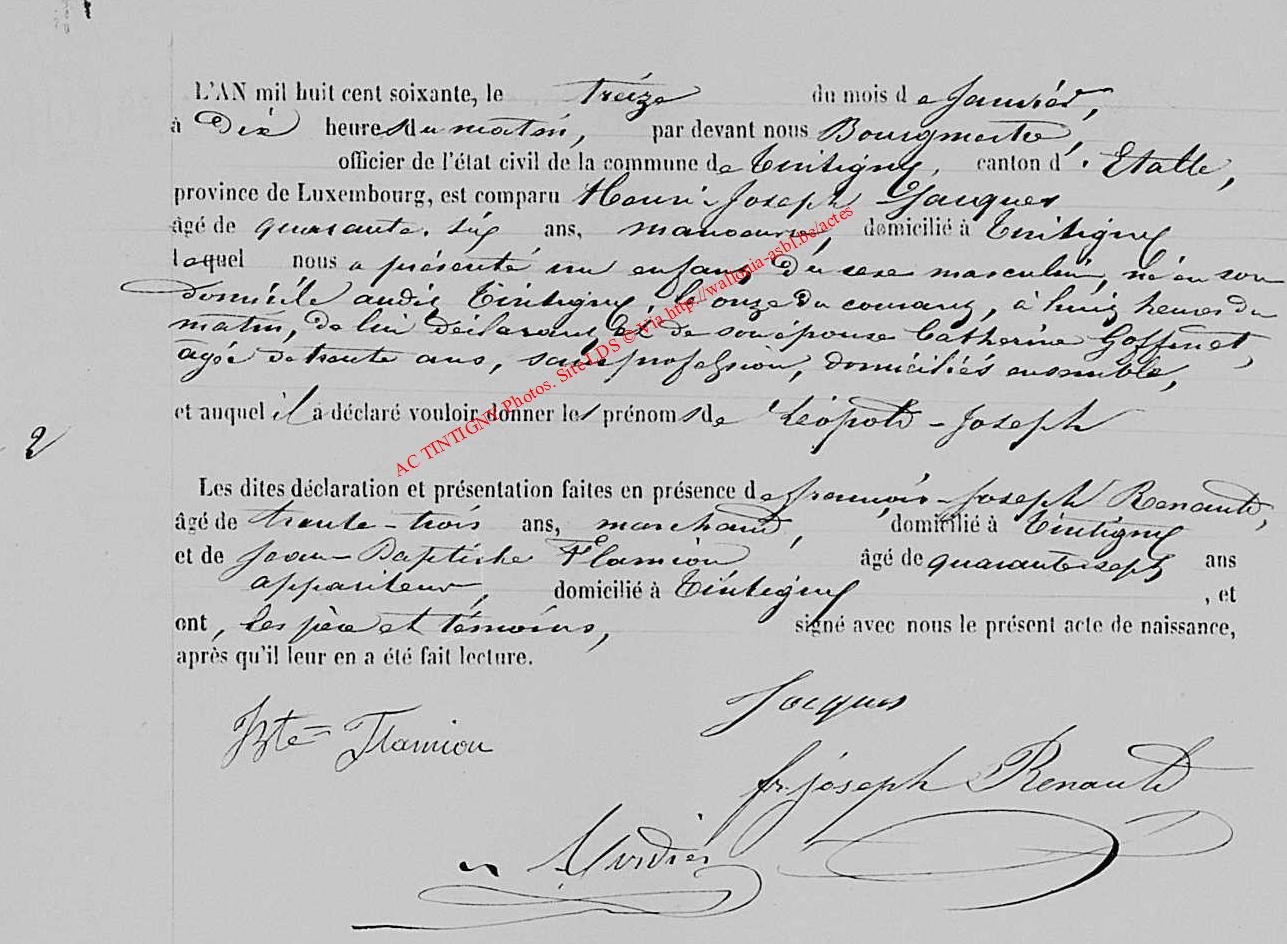 L'AN mil huit cent soixante, le treize du mois de Janvier,
à Dix heures du matin, par devant nous Bourgmestre,
officier de l'état civil de la commune de Tintigny, canton d'Etalle,
province de Luxembourg, est comparu Henri-Joseph Jacques
âgé de quarante-six ans, manoeuvre, domicilié à Tintigny
lequel nous a présenté un enfant du sexe masculin, né en son
domicile audit Tintigny, le onze du courant, à huit heures du
matin, de lui déclarant et de son épouse Catherine Goffinet,
âgée de trente ans, sans profession, domiciliés ensemble,
et auquel il a déclaré vouloir donner les prénoms de Léopold-Joseph
2
Les dites déclaration et présentation faites en présence de françois-Joseph Renauld,
âgé de trente-trois ans, marchand, domicilié à Tintigny
et de Jean-Baptiste Flamion âgé de quarante sept ans
appariteur, domicilié à Tintigny, et
ont, les père et témoins, signé avec nous le présent acte de naissance,
après qu'il leur en a été fait lecture.
Jacques
Bte Flamion
fr. joseph Renauld
AC TINTIGNY Photos. Site LDS © Via http://wallonia-asbl.be/actes